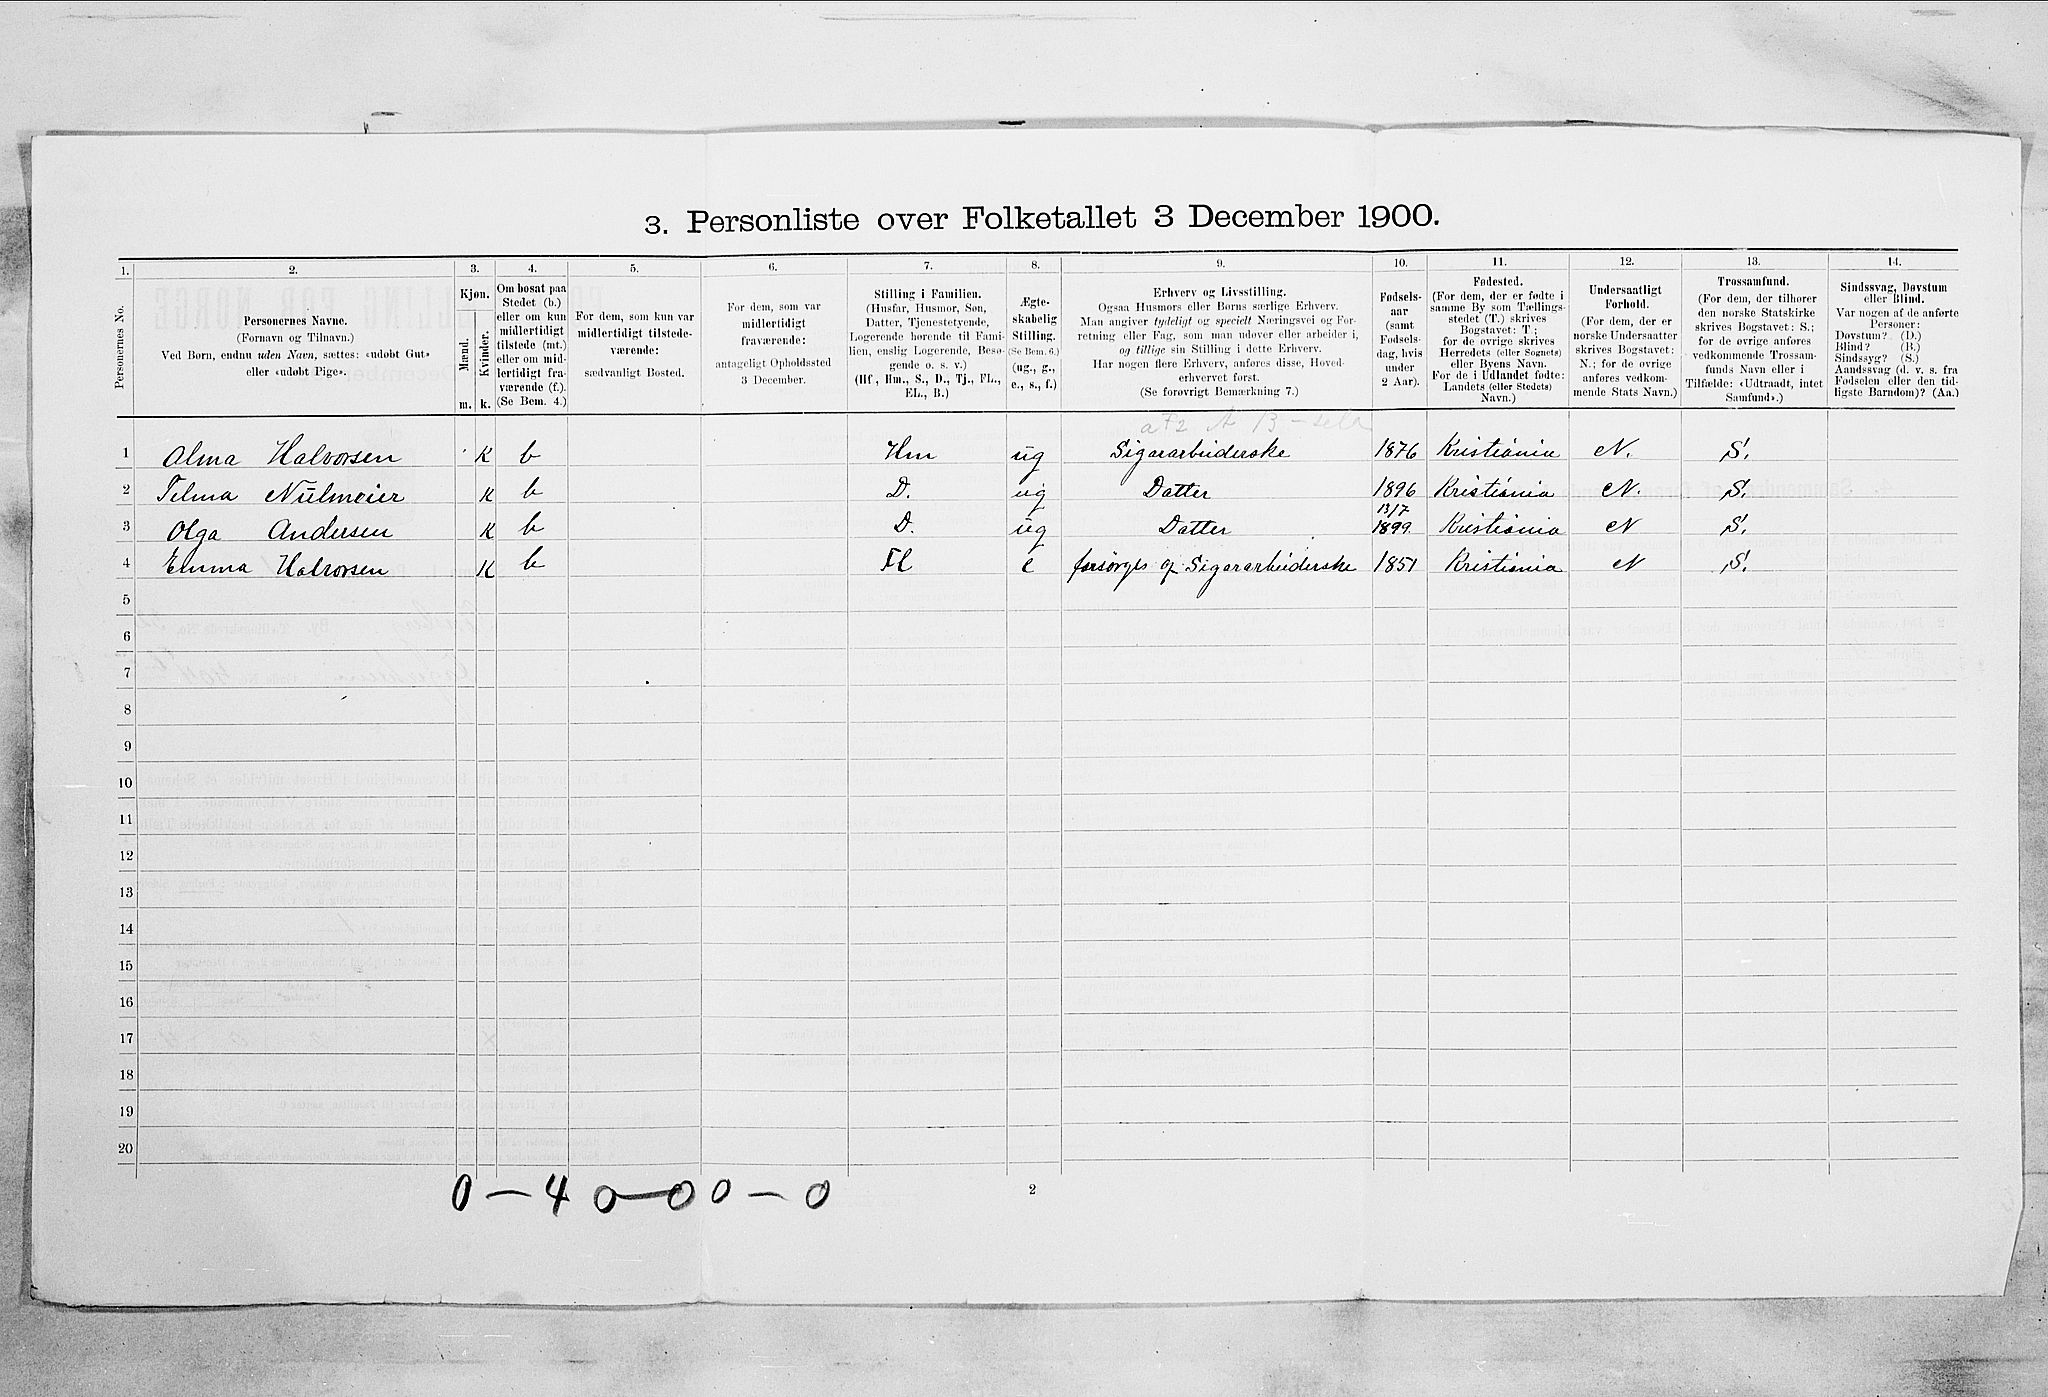 3. Personliste over Folketallet 3 December 1900.
1. 2. 3. 4. 5. 6. 7. 8. 9. 10. 11. 12. 13. 14.
Personernes No.
Personernes Navne.
(Fornavn og Tilnavn.)
Ved Børn, endnu uden Navn, sættes: «udøbt Gut»
eller «udøbt Pige».
Kjøn.
Mænd.
Kvinder.
m. k.
Om bosat paa
Stedet (b.)
eller om kun
midlertidigt
tilstede (mt.)
eller om mid-
lertidigt fra-
værende (f.).
(Se Bem. 4.)
For dem, som kun var
midlertidigt tilstede-
værende:
sædvanligt Bosted.
For dem, som var
midlertidigt
fraværende:
antageligt Opholdssted
3 December.
Stilling i Familien.
(Husfar, Husmor, Søn,
Datter, Tjenestetyende,
Logerende hørende til Fami-
lien, enslig Logerende, Besø-
gende o. s. v.)
(Hf., Hm., S., D., Tj., FL.,
EL., B.)
Ægte-
skabelig
Stilling.
(Se Bem. 6.)
(ug., g.,
e., s., f.)
Erhverv og Livsstilling.
Ogsaa Husmors eller Børns særlige Erhverv.
Man angiver tydeligt og specielt Næringsvei og For-
retning eller Fag, som man udøver eller arbeider i,
og tillige sin Stilling i dette Erhverv.
Har nogen flere Erhverv, anføres disse, Hoved-
erhvervet først.
(Se forøvrigt Bemærkning 7.)
Fødsels-
aar
(samt
Fødsels-
dag, hvis
under
2 Aar).
Fødested.
(For dem, der er fødte i
samme By som Tællings-
stedet (T.) skrives
Bogstavet: T.;
for de øvrige skrives
Herredets (eller Sognets)
eller Byens Navn.
For de i Udlandet fødte:
Landets (eller Stedets)
Navn.)
Undersaatligt
Forhold.
(For dem, der er
norske Undersaatter
skrives Bogstavet:
N.; for de øvrige
anføres vedkom-
mende Stats Navn.)
Trossamfund.
(For dem, der tilhører
den norske Statskirke
skrives Bogstavet: S.;
for de øvrige anføres
vedkommende Trossam-
funds Navn eller i
Tilfælde: «Udtraadt, intet
Samfund».)
Sindssvag, Døvstum
eller Blind.
Var nogen af de anførte
Personer:
Døvstum? (D.)
Blind? (B.)
Sindssyg? (S.)
Aandssvag (d. v. s. fra
Fødselen eller den tid-
ligste Barndom)? (Aa.)
1 Alma Halvorsen K b Hm ug Sigararbeiderske 1876 Kristiania N. S.
2 Telma Nülmeier K b D. ug Datter 1896 Kristiania N. S.
13/7
3 Olga Andersen K b D. ug Datter 1899 Kristiania N S.
4 Emma Halvorsen K b Fl e forsørges af Sigararbeiderske 1851 Kristiania N S.
5
6
7
8
9
10
11
12
13
14
15
16
17
18
19
20
0 – 4 0 – 0 0 – 0
2